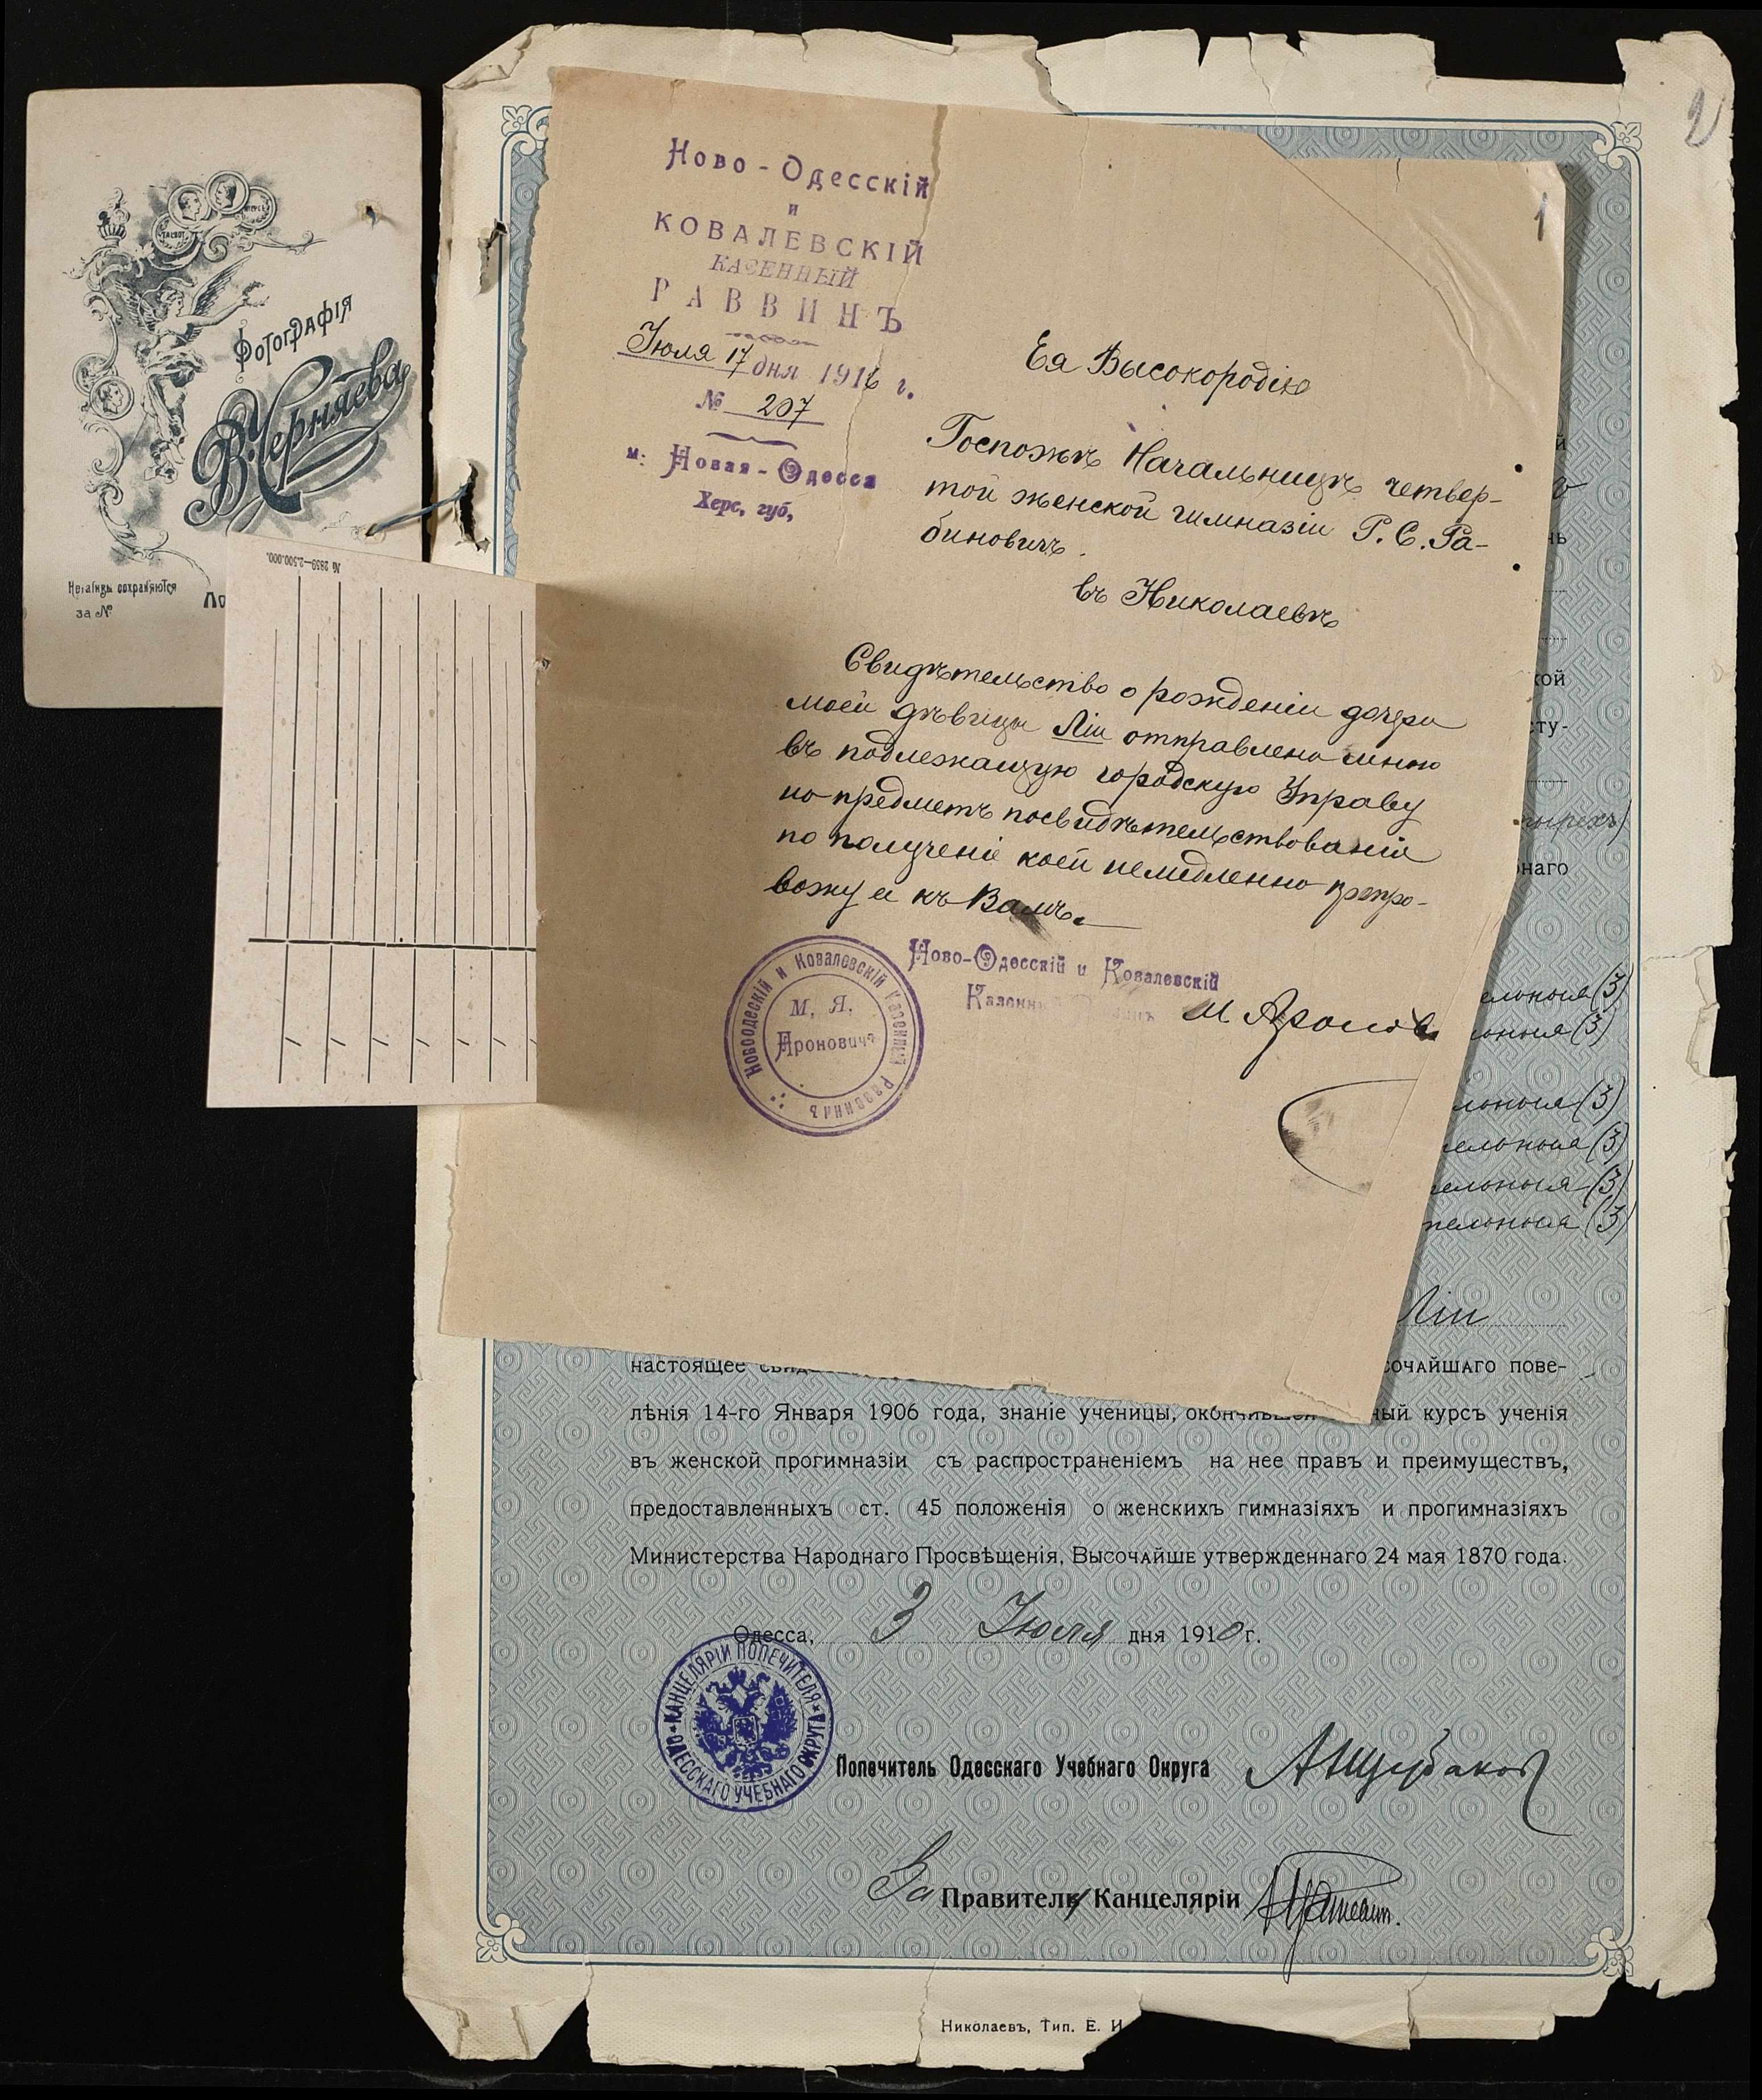 2
1
Ново-Одесскій
и
КОВАЛЕВСКІЙ
КАЗЕННЫЙ
РАВВИНЪ
Іюля 17 дня 1916 г.
№ 207
м: Новая-Одесса
Херс, губ,
Ея Высокородію
Госпожѣ Начальницѣ четвер-
той женской гимназіи Р. С. Ра-
биновичъ.
въ Николаевѣ
Свидѣтельство о рожденіи дочери
моей дѣвицы Ліи отправлено мною
въ подлежащую городскую Управу
на предметъ посвидѣтельствованія
по полученіе коей немедленно препро-
вожу и къ Вамъ.
Ново-Одесскій и Ковалевскій
М. Аронов
Новоодесскій и Ковалевскій Казенный Раввинъ
М. Я.
Ароновичъ
TALBOT
Фотографія
В. Черняева
Негативы сохраняются
за №
По
№ 2859—2.500.000.
кой
сту-
наго
ельныя (3)
ельныя (3)
ельныя (3)
ельныя (3)
ельныя (3)
тельныя (3)
Ліи
настоящее свид
сочайшаго пове-
лѣнія 14-го Января 1906 года, знаніе ученицы, окончившей ный курсъ ученія
въ женской прогимназіи съ распространеніемъ на нее правъ и преимуществъ,
предоставленныхъ ст. 45 положенія о женскихъ гимназіяхъ и прогимназіяхъ
Министерства Народнаго Просвѣщенія, Высочайше утвержденнаго 24 мая 1870 года.
Одесса, 3 Іюля дня 1910 г.
КАНЦЕЛЯРІИ ПОПЕЧИТЕЛЯ ОДЕССКАГО УЧЕБНАГО ОКРУГА
Попечитель Одесскаго Учебнаго Округа АЩербаков
За Правителя Канцеляріи
Николаевъ, Тип. Е. И